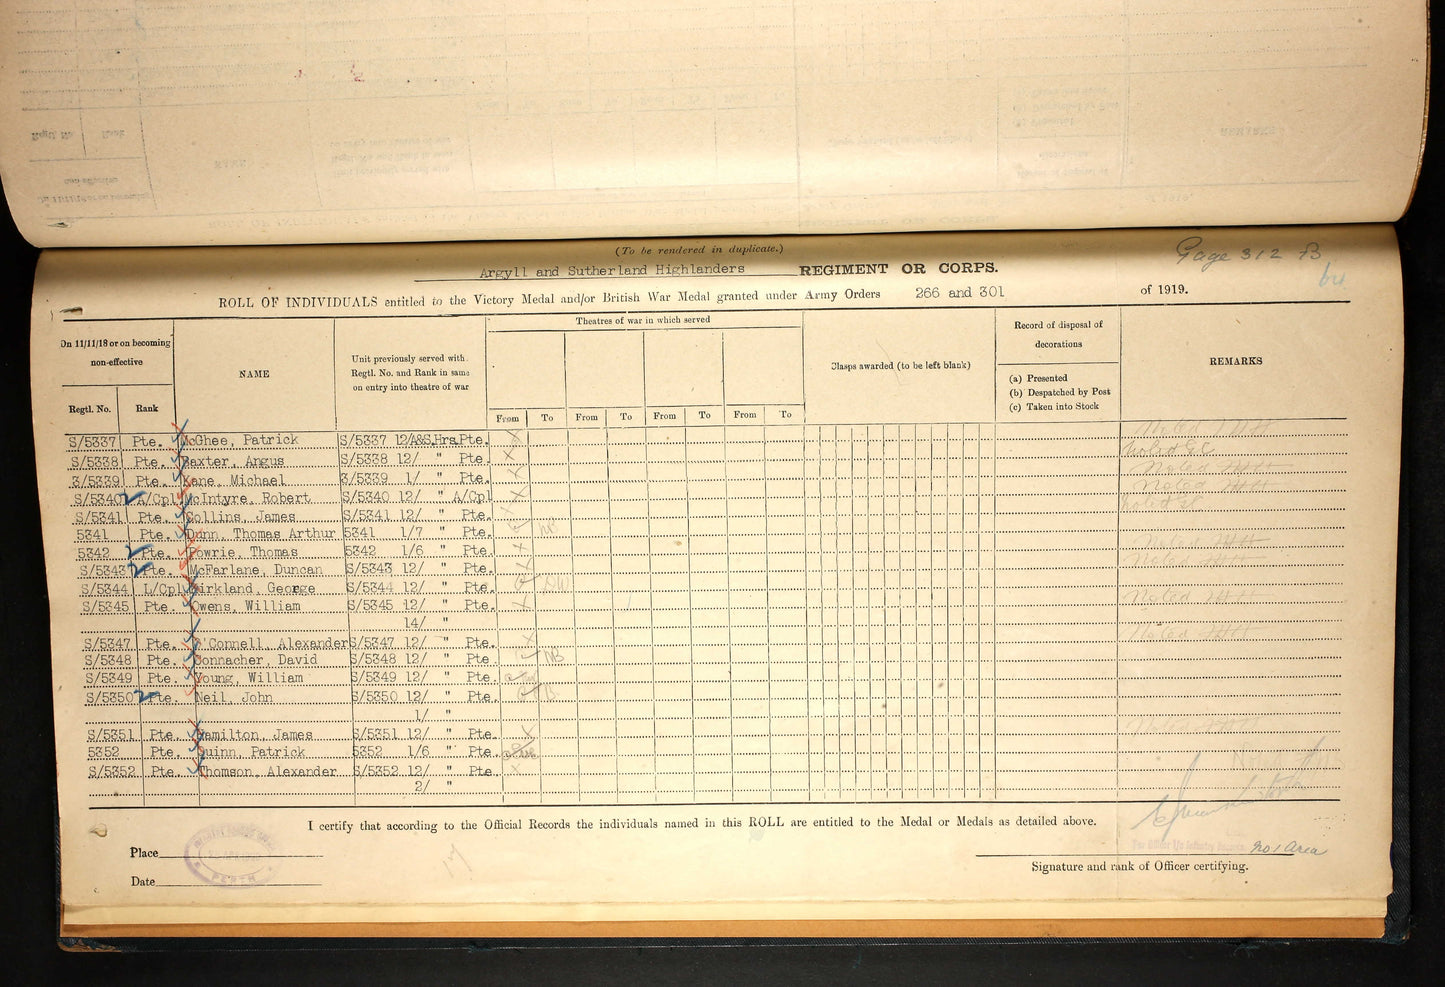 (To be rendered in duplicate.)
Page 312 B
Argyll and Sutherland Highlanders REGIMENT OR CORPS.
ROLL OF INDIVIDUALS entitled to the Victory Medal and/or British War Medal granted under Army Orders 266 and 301 of 1919.
On 11/11/18 or on becoming non-effective
Regtl. No. Rank
NAME
Unit previously served with. Regtl. No. and Rank in same on entry into theatre of war
Theatres of war in which served
From To From To From To From To
Clasps awarded (to be left blank)
Record of disposal of decorations
(a) Presented
(b) Despatched by Post
(c) Taken into Stock
REMARKS
S/5337 Pte. McGhee, Patrick S/5337 12/A&S.Hrs.Pte.
S/5338 Pte. Baxter, Angus S/5338 12/ " Pte. Noted GC
3/5339 Pte. Kane, Michael 3/5339 1/ " Pte. Noted
S/5340 A/Cpl McIntyre, Robert S/5340 12/ " A/Cpl Noted
S/5341 Pte. Collins, James S/5341 12/ " Pte.
5341 Pte. Dunn, Thomas Arthur 5341 1/7 " Pte.
5342 Pte. Powrie, Thomas 5342 1/6 " Pte. Noted
S/5343 Pte. McFarlane, Duncan S/5343 12/ " Pte. Noted
S/5344 L/Cpl Kirkland, George S/5344 12/ " Pte.
S/5345 Pte. Owens, William S/5345 12/ " Pte. Noted
14/ "
S/5347 Pte. O'Connell, Alexander S/5347 12/ " Pte. Noted
S/5348 Pte. Connacher, David S/5348 12/ " Pte.
S/5349 Pte. Young, William S/5349 12/ " Pte.
S/5350 Pte. Neil, John S/5350 12/ " Pte.
1/ "
S/5351 Pte. Hamilton, James S/5351 12/ " Pte. Noted
5352 Pte. Quinn, Patrick 5352 1/6 " Pte.
S/5352 Pte. Thomson, Alexander S/5352 12/ " Pte.
2/ "
I certify that according to the Official Records the individuals named in this ROLL are entitled to the Medal or Medals as detailed above.
Place
Date
PERTH
17
No 1 Area
Signature and rank of Officer certifying.